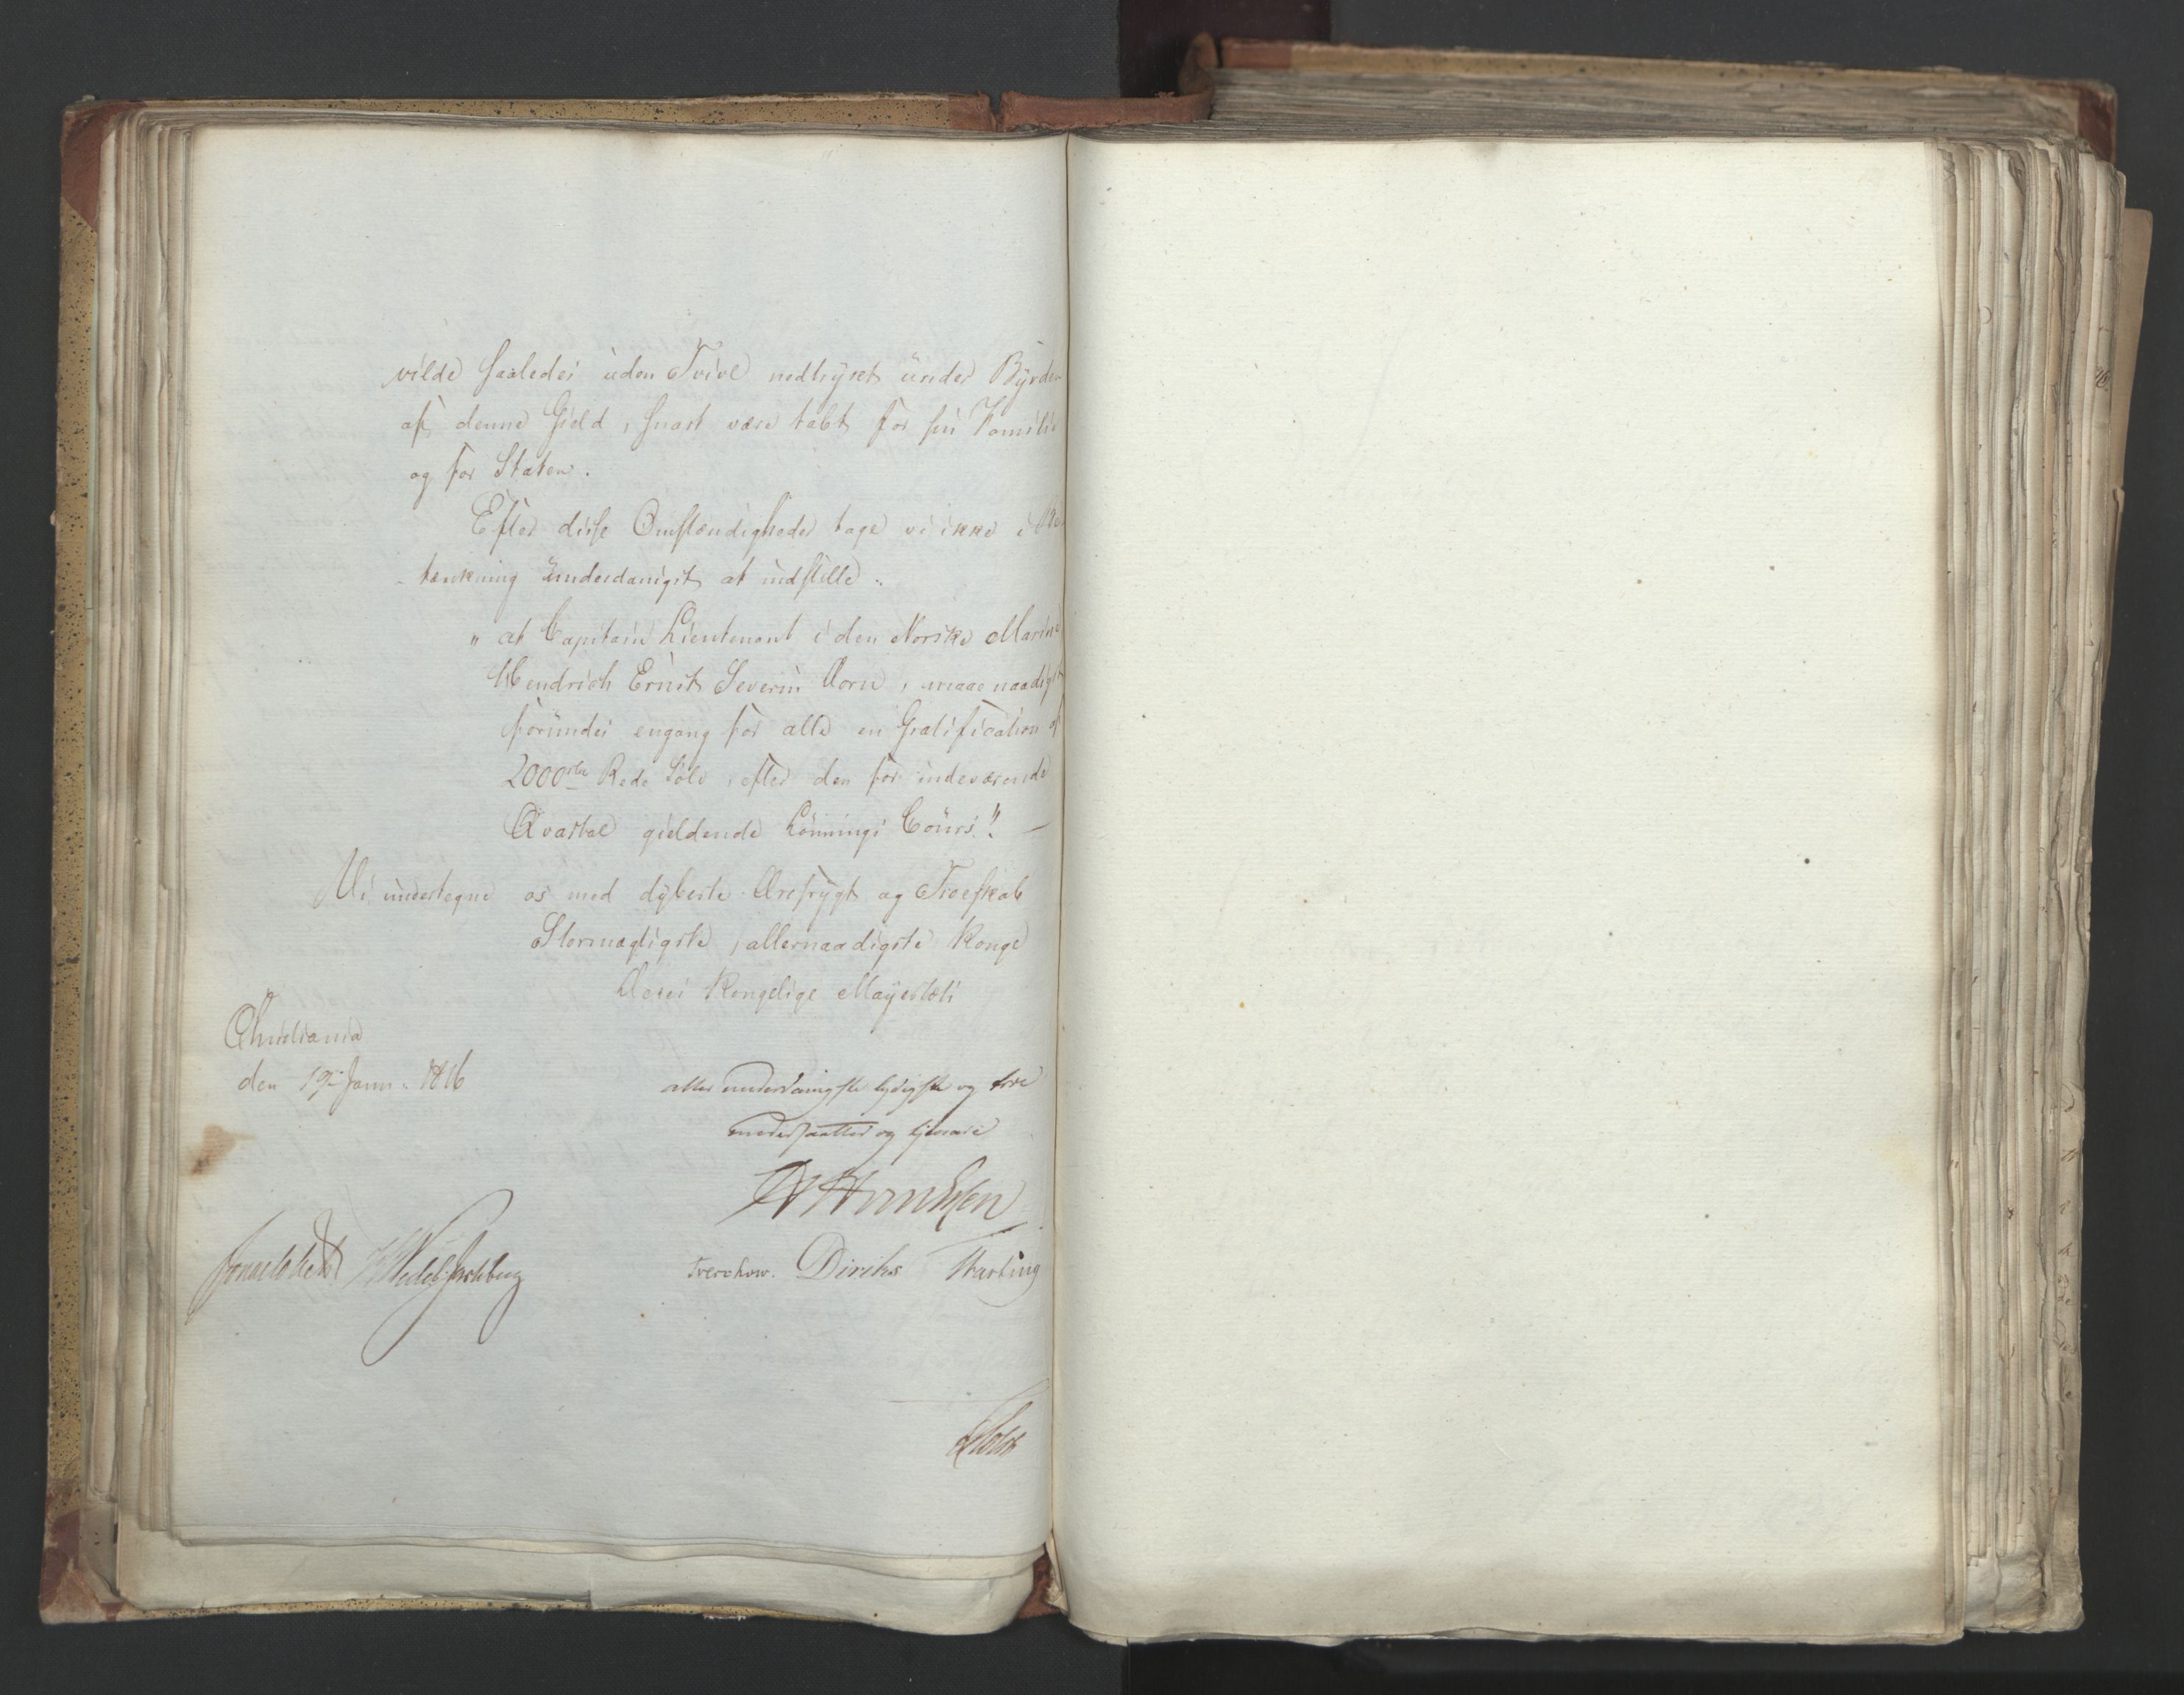 vilde saaledes uden Tvivl nedtrykt under Byrden
af denne Gield, snart være tabt for sin Familie
og for Staten.
Efter disse Omstændigheder tage vi ikke i Be
-tænkning underdanigst at indstille:
"at Capitain Lieutenant i den Norske Marine
Hendrich Ernst Severin Vorn, maae naadigst
forundes engang for alle en Gratification af
2000 rbr Rede Sølv, efter den for indeværende
Qvartal gieldende Lønnings Cours." —
Vi undertegne os med dybeste Ærefrygt og Troeskab
Stormægtigste, allernaadigste Konge
Deres Kongelige Mayestæts
Christiania
den 19de Janu. 1816
aller underdanigste lydigste og troe
undersaatter og tjenare
Treschow. Diriks